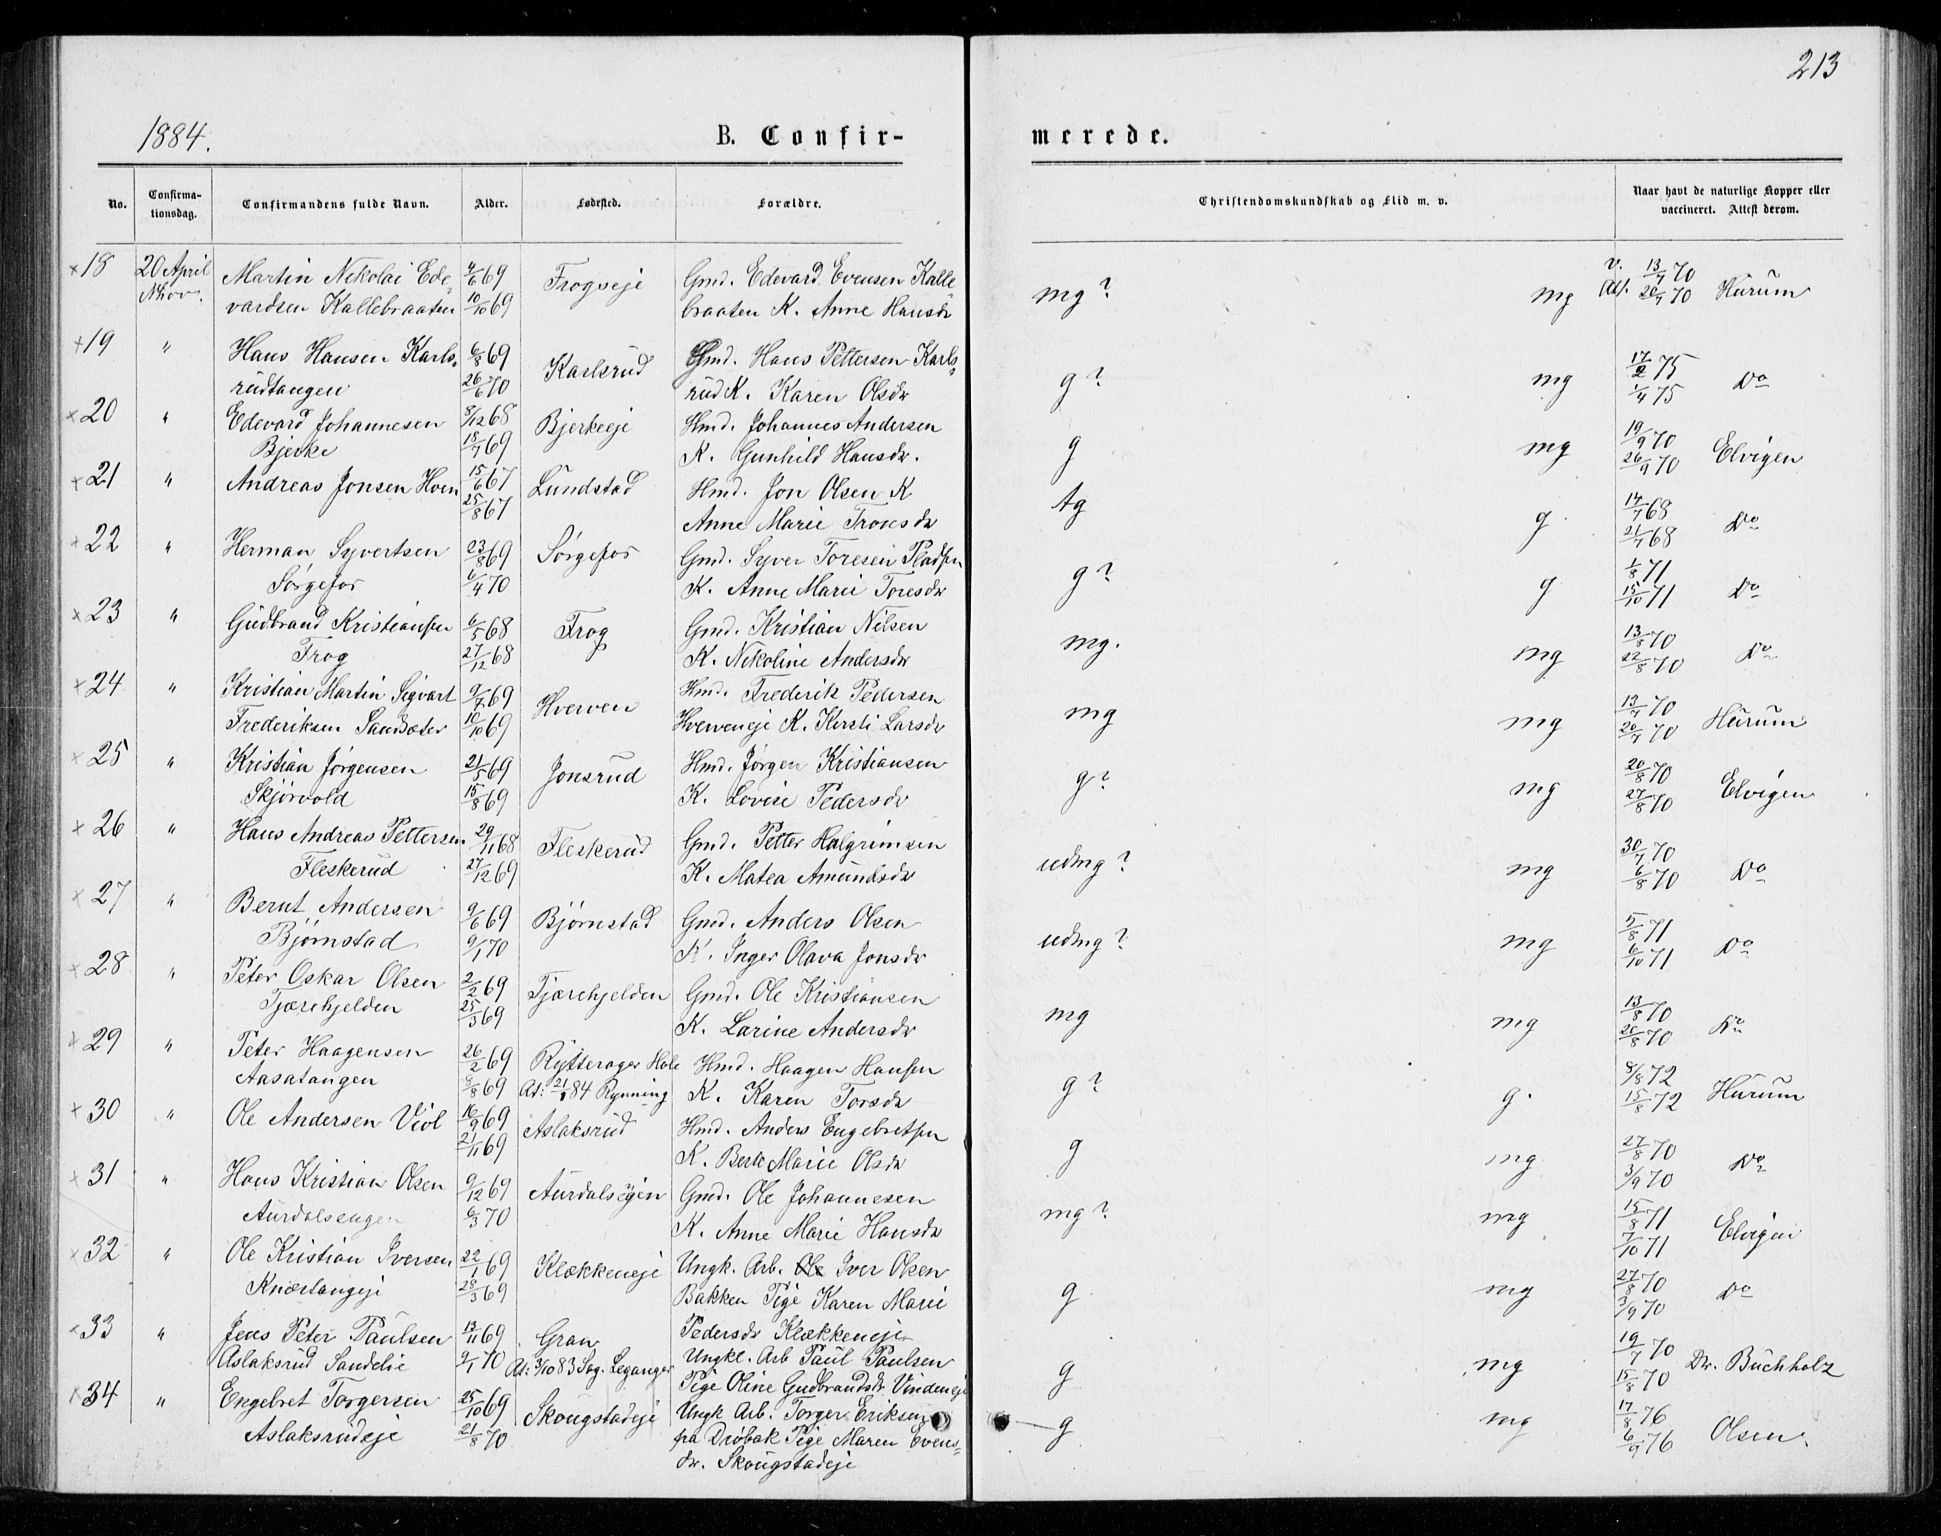 213
1884.
B. Confir-
merede.
No.
Confirma-
tionsdag.
Confirmandens fulde Navn.
Alder.
Fødested.
Forældre.
Christendomskundskab og Flid m. v.
Naar havt de naturlige Kopper eller
vaccineret. Attest derom.
18 20 April Martin Nikolai Ede- 4/6 69 Frogseje Gmd. Edevard Evensen Kalle mg? mg v. 13/7 70 Hurum
Nhov. vardsen Kallebraaten 10/10 69 braaten K. Anne Hansdr At. 20/7 70
19 " Hans Hansen Karls- 6/8 69 Karlsrud Gmd. Hans Pettersen Karls- g? mg 17/2 75 Do
rudtangen 26/6 70 rud K. Karen Olsdr 1/4 75
20 " Edevard Johannesen 8/12 68 Bjerkeeje Hmd. Johannes Andersen g mg 19/9 70 Elvigen
Bjerke 18/7 69 K. Gunhild Hansdr. 26/9 70
21 " Andreas Jonsen Hven 15/6 67 Lundstad Hmd. Jon Olsen K tg g 14/7 68 Do
25/8 67 Anne Marie Tronsdr 21/7 68
22 " Herman Syvertsen 23/8 69 Sørgefos Gmd. Syver Toresen Pladsen g? g 1/8 71 Do
Sørgefos 6/4 70 K. Anne Marie Toresdr 15/10 71
23 " Gudbrand Kristiansen 6/5 68 Frog Gmd. Kristian Nilsen mg. mg 13/8 70 Do
Frog 27/12 68 K. Nikoline Andersdr 22/8 70
24 " Kristian Martin Sigvart 9/7 69 Hverven Hmd. Frederik Pedersen mg mg 13/7 70 Hurum
Frederiksen Sandsæter 10/10 69 Hverveneje K. Kersti Larsdr 20/7 70
25 " Kristian Jørgensen 21/5 69 Jonsrud Hmd. Jørgen Kristiansen g? mg 20/8 70 Elvigen
Skjørvold 15/8 69 K. Lovise Pedersdr 27/8 70
26 " Hans Andreas Pettersen 29/11 68 Fleskerud Gmd. Petter Halgrimsen udmg? mg 30/7 70 Do
Fleskerud 27/12 69 K. Matea Amundsdr 6/8 70
27 " Bernt Andersen 9/6 69 Bjørnstad Gmd. Anders Olsen udmg? mg 5/8 71 Do
Bjørnstad 9/1 70 K. Inger Olava Jonsdr 6/10 71
28 " Peter Oskar Olsen 2/2 69 Tjærehjelden Gmd. Ole Kristiansen mg mg 13/8 70 Do
Tjærehjelden 25/3 69 K. Larine Andersdr 20/8 70
29 " Peter Haagensen 26/2 69 Rytterager Hole Hmd. Haagen Hansen g? g. 8/8 72 Hurum
Aasatangen 8/8 69 At: 21/1 84 Rynning K. Karen Torsdr 15/8 72
30 " Ole Andersen Viol 16/9 69 Aslaksrud Hmd. Anders Engebretsen g mg 27/8 70 Do
21/11 69 K. Berte Marie Olsdr 3/9 70
31 " Hans Kristian Olsen 9/12 69 Aurdalsegen Gmd. Ole Johannesen mg? mg 15/8 71 Elvigen
Aurdalsengen 6/3 70 K. Anne Marie Hansdr 7/10 71
32 " Ole Kristian Iversen 22/1 69 Klækkeneje Ungk. Arb. Ole Iver Olsen g mg 27/8 70 Do
Knæstangeje 28/3 69 Bakken Pige Karen Marie 3/9 70
Pedersdr Klækkeneje
33 " Jens Peter Paulsen 13/11 69 Gran Ungkl. Arb Paul Paulsen g mg 19/7 70 Dr. Buchholz
Aslaksrud Sandelie 9/1 70 At: 3/10 83 Sog. Leganger Pige Oline Gudbrandsdr Vindeneje 15/8 70
34 " Engebret Torgersen 25/10 69 Skougstadeje Ungk Arb. Torger Eriksen g mg 17/8 76 Olsen.
Aslaksrudeje 21/8 70 fra Drøbak Pige Maren Evens- 6/9 76
dr. Skougstadeje